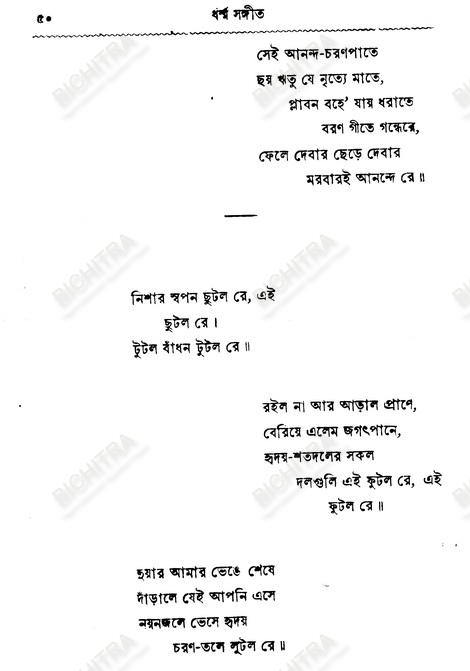 ৫০
ধর্ম্ম সঙ্গীত
সেই আনন্দ-চরণপাতে
ছয় ঋতু যে নৃত্যে মাতে,
প্লাবন বহে' যায় ধরাতে
বরণ গীতে গন্ধেরে,
ফেলে দেবার ছেড়ে দেবার
মরবারই আনন্দে রে॥
নিশার স্বপন ছুটল রে, এই
ছুটল রে।
টুটল বাঁধন টুটল রে॥
রইল না আর আড়াল প্রাণে,
বেরিয়ে এলেম জগৎপানে,
হৃদয়-শতদলের সকল
দলগুলি এই ফুটল রে, এই
ফুটল রে॥
দুয়ার আমার ভেঙে শেষে
দাঁড়ালে যেই আপনি এসে
নয়নজলে ভেসে হৃদয়
চরণ-তলে লুটল রে॥
BICHITRA
BICHITRA
BICHITRA
BICHITRA
BICHITRA
BICHITRA
BICHITRA
BICHITRA
BICHITRA